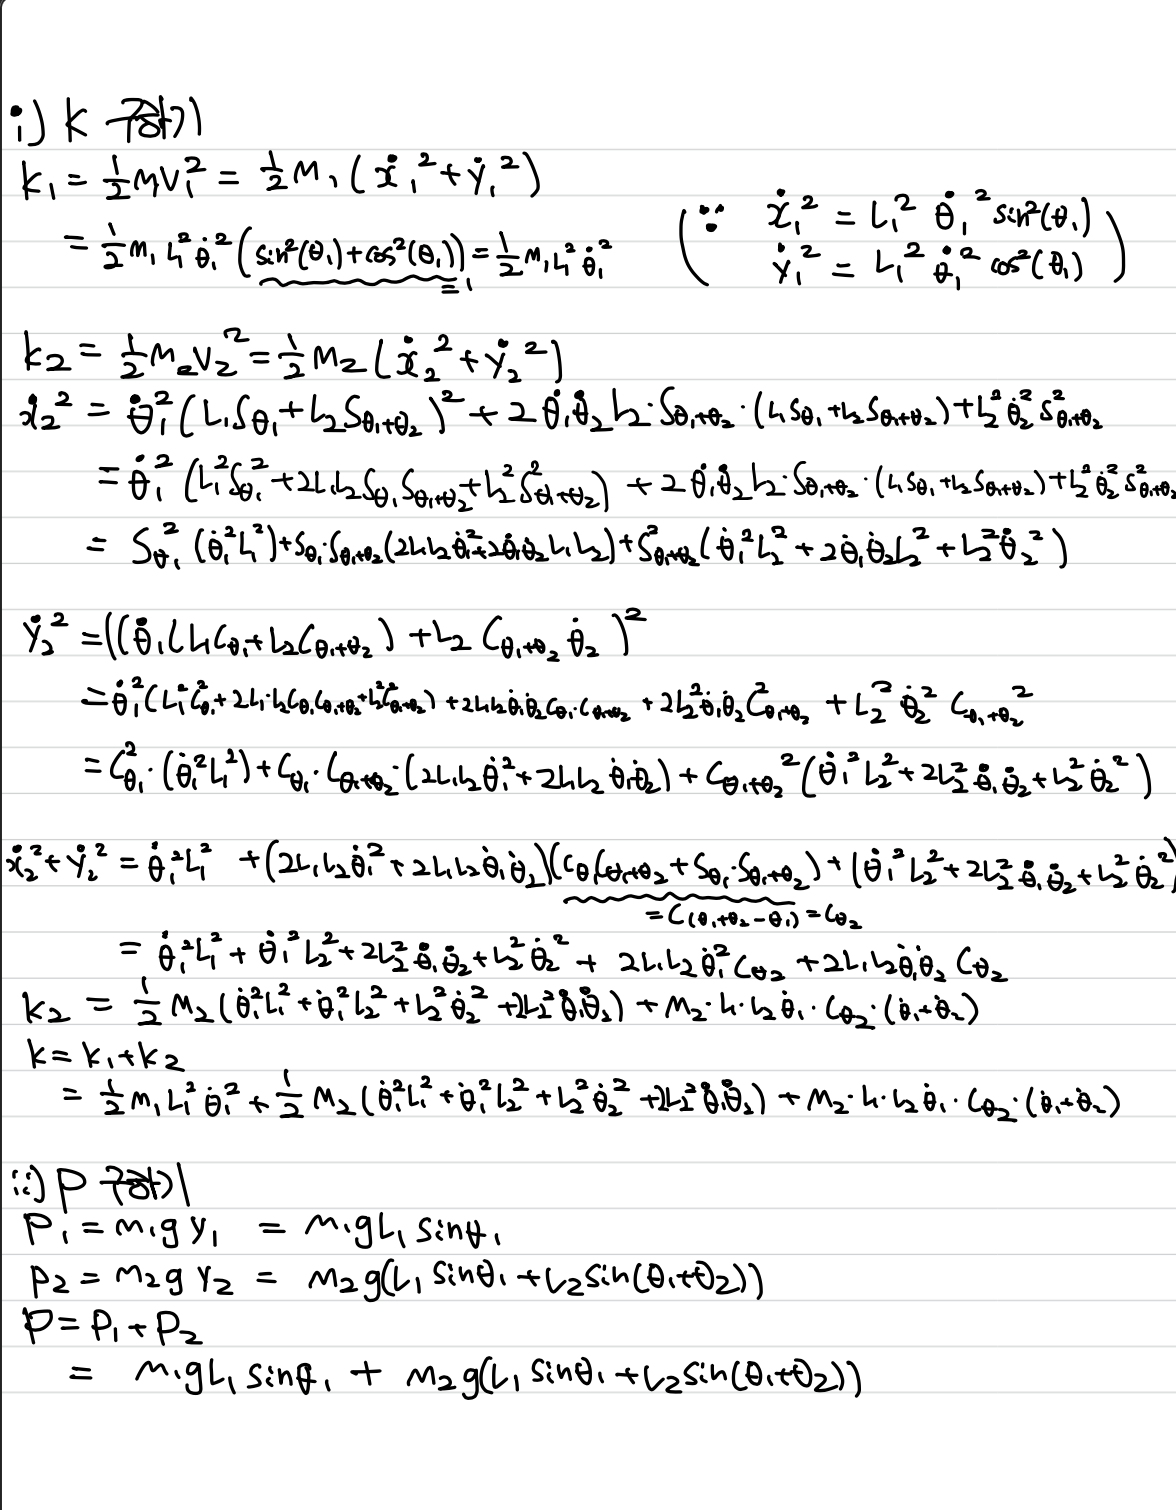 i) K 구하기
K₁ = ½mV₁² = ½m₁(ẋ₁² + ẏ₁²)
= ½m₁L₁²θ̇₁²(sin²(θ₁)+cos²(θ₁)) = ½m₁L₁²θ̇₁²
=1
(∵ ẋ₁² = L₁² θ̇₁² sin²(θ₁)
ẏ₁² = L₁² θ̇₁² cos²(θ₁))
K₂ = ½m₂V₂² = ½m₂(ẋ₂² + ẏ₂²)
ẋ₂² = θ̇₁²(L₁S_θ₁ + L₂S_θ₁+θ₂)² + 2θ̇₁θ̇₂L₂·S_θ₁+θ₂·(L₁S_θ₁+L₂S_θ₁+θ₂)+L₂²θ̇₂²S²_θ₁+θ₂
= θ̇₁²(L₁²S_θ₁²+2L₁L₂S_θ₁S_θ₁+θ₂+L₂²S²_θ₁+θ₂) + 2θ̇₁θ̇₂L₂·S_θ₁+θ₂·(L₁S_θ₁+L₂S_θ₁+θ₂)+L₂²θ̇₂²S²_θ₁+θ₂
= S_θ₁²(θ̇₁²L₁²)+S_θ₁·S_θ₁+θ₂(2L₁L₂θ̇₁²+2θ̇₁θ̇₂L₁L₂)+S²_θ₁+θ₂(θ̇₁²L₂²+2θ̇₁θ̇₂L₂²+L₂²θ̇₂²)
ẏ₂² = ((θ̇₁(L₁C_θ₁+L₂C_θ₁+θ₂)+L₂C_θ₁+θ₂θ̇₂)²
= θ̇₁²(L₁²C²_θ₁+2L₁·L₂C_θ₁C_θ₁+θ₂+L₂²C²_θ₁+θ₂)+2L₁L₂θ̇₁θ̇₂C_θ₁·C_θ₁+θ₂+2L₂²θ̇₁θ̇₂C²_θ₁+θ₂+L₂²θ̇₂²C_θ₁+θ₂²
= C²_θ₁·(θ̇₁²L₁²)+C_θ₁·C_θ₁+θ₂·(2L₁L₂θ̇₁²+2L₁L₂θ̇₁θ̇₂)+C_θ₁+θ₂²(θ̇₁²L₂²+2L₂²θ̇₁θ̇₂+L₂²θ̇₂²)
ẋ₂²+ẏ₂² = θ̇₁²L₁² +(2L₁L₂θ̇₁²+2L₁L₂θ̇₁θ̇₂)(C_θ₁C_θ₁+θ₂+S_θ₁·S_θ₁+θ₂)+(θ̇₁²L₂²+2L₂²θ̇₁θ̇₂+L₂²θ̇₂²)
=C(θ₁+θ₂-θ₁)=C_θ₂
= θ̇₁²L₁²+θ̇₁²L₂²+2L₂²θ̇₁θ̇₂+L₂²θ̇₂²+2L₁L₂θ̇₁²C_θ₂+2L₁L₂θ̇₁θ̇₂C_θ₂
K₂ = ½m₂(θ̇₁²L₁²+θ̇₁²L₂²+L₂²θ̇₂²+2L₂²θ̇₁θ̇₂)+m₂·L₁·L₂θ̇₁·C_θ₂·(θ̇₁+θ̇₂)
K = K₁+K₂
= ½m₁L₁²θ̇₁²+½m₂(θ̇₁²L₁²+θ̇₁²L₂²+L₂²θ̇₂²+2L₂²θ̇₁θ̇₂)+m₂·L₁·L₂θ̇₁·C_θ₂·(θ̇₁+θ̇₂)
ii) P 구하기
P₁ = m₁g y₁ = m₁gL₁ sinθ₁
P₂ = m₂g y₂ = m₂g(L₁ sinθ₁+L₂sin(θ₁+θ₂))
P = P₁+P₂
= m₁gL₁ sinθ₁ + m₂g(L₁ sinθ₁+L₂sin(θ₁+θ₂))